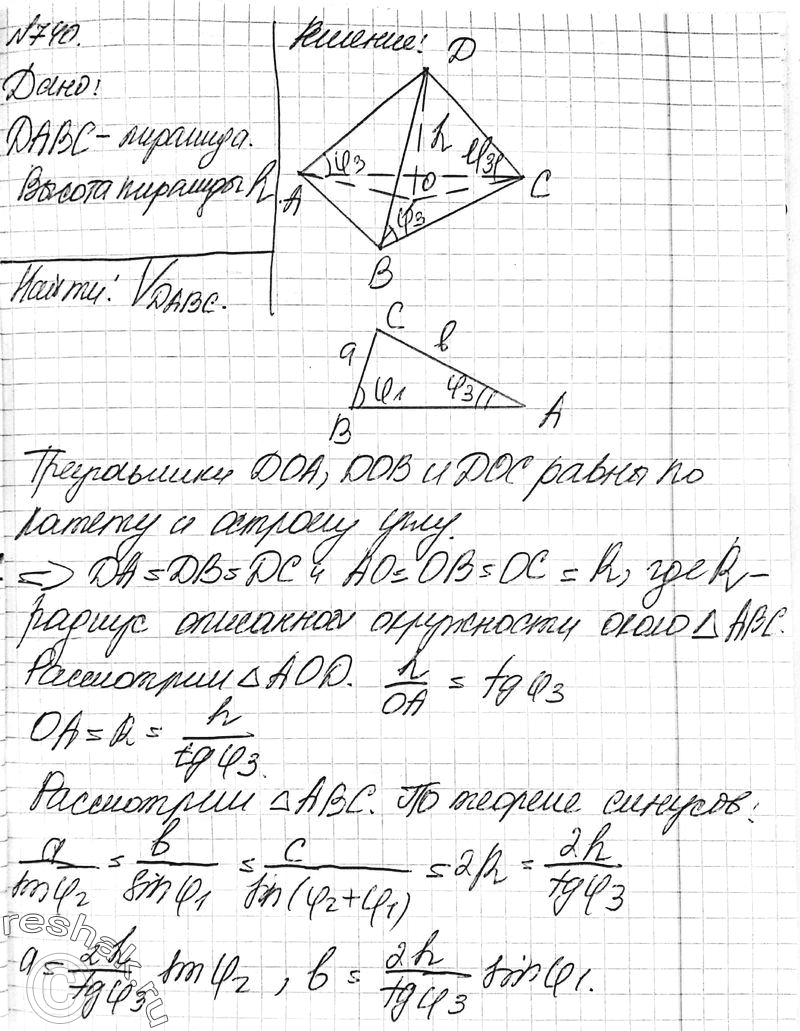 №740.
Решение:
Дано:
DABC – пирамида.
Высота пирамиды h.
Найти: V DABC.
D
h
φ3
φ3
A
O
C
φ3
B
C
a
b
φ1
φ3
B
A
Треугольники DOA, DOB и DOC равны по
катету и острому углу.
=> DA = DB = DC и AO = OB = OC = R, где R –
радиус описанной окружности около △ ABC.
Рассмотрим △ AOD. h/OA = tg φ3
OA = R = h/tg φ3.
Рассмотрим △ ABC. По теореме синусов:
a/sin φ2 = b/sin φ1 = c/sin(φ2+φ1) = 2R = 2h/tg φ3
a = 2h/tg φ3 sin φ2, b = 2h/tg φ3 sin φ1.
reshak.ru
©